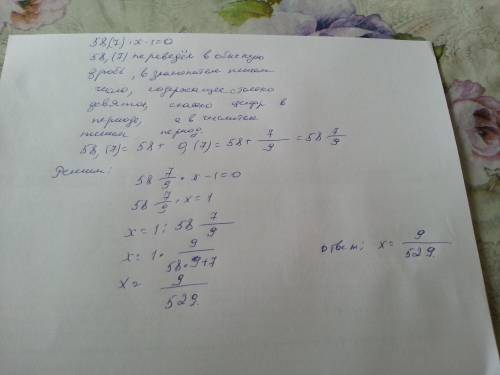 58,(7) · x - 1 = 0
58,(7) переведём в обычную
дробь, в знаменателе пишем
число, содержащее столько
девяток, сколько цифр в
периоде, а в числителе
пишем период.
58,(7) = 58 + 0,(7) = 58 + 7/9 = 58 7/9
Решаем:
58 7/9 · x - 1 = 0
58 7/9 · x = 1
x = 1 : 58 7/9
x = 1 · 9/58·9+7
x = 9/529
ответ: x = 9/529